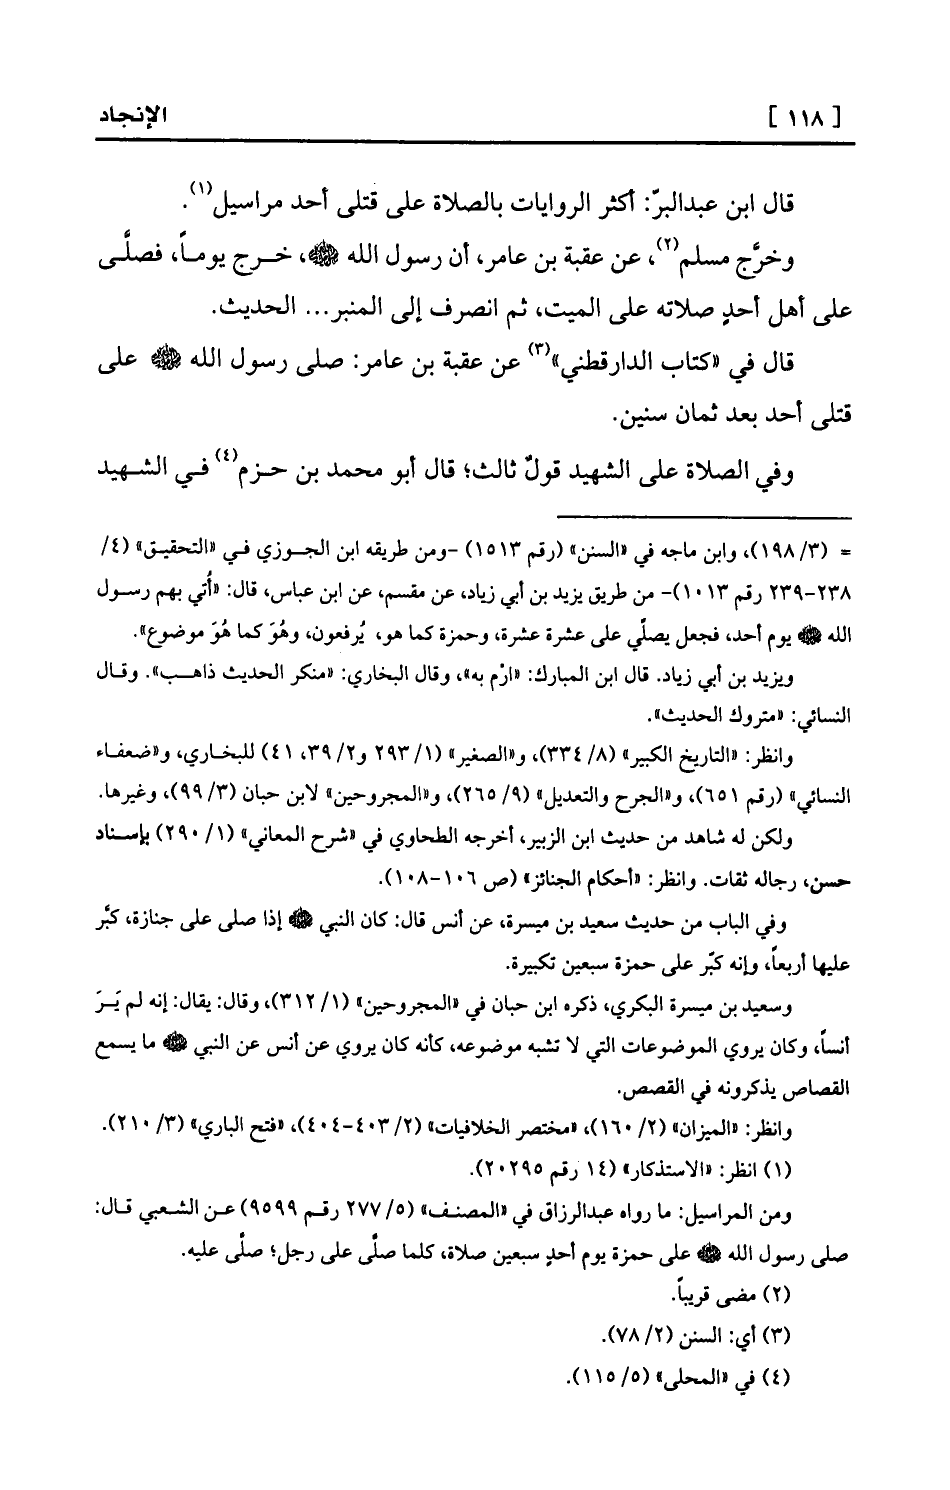 [ ١١٨ ] الإنجاد
قال ابن عبدالبرّ: أكثر الروايات بالصلاة على قتلى أحد مراسيل(١).
وخرَّج مسلم(٢)، عن عقبة بن عامر، أن رسول الله ﷺ، خرج يوماً، فصلَّى
على أهل أحدٍ صلاته على الميت، ثم انصرف إلى المنبر... الحديث.
قال في «كتاب الدارقطني»(٣) عن عقبة بن عامر: صلى رسول الله ﷺ على
قتلى أحد بعد ثمان سنين.
وفي الصلاة على الشهيد قولٌ ثالث؛ قال أبو محمد بن حزم(٤) في الشهيد
= (٣/ ١٩٨)، وابن ماجه في «السنن» (رقم ١٥١٣) -ومن طريقه ابن الجوزي في «التحقيق» (٤/
٢٣٨-٢٣٩ رقم ١٠١٣)- من طريق يزيد بن أبي زياد، عن مقسم، عن ابن عباس، قال: «أُتي بهم رسول
الله ﷺ يوم أحد، فجعل يصلّي على عشرة عشرة، وحمزة كما هو، يُرفعون، وهُوَ كما هُوَ موضوع».
ويزيد بن أبي زياد. قال ابن المبارك: «ارْم به»، وقال البخاري: «منكر الحديث ذاهب». وقال
النسائي: «متروك الحديث».
وانظر: «التاريخ الكبير» (٨/ ٣٣٤)، و«الصغير» (١/ ٢٩٣ و٢/ ٣٩، ٤١) للبخاري، و«ضعفاء
النسائي» (رقم ٦٥١)، و«الجرح والتعديل» (٩/ ٢٦٥)، و«المجروحين» لابن حبان (٣/ ٩٩)، وغيرها.
ولكن له شاهد من حديث ابن الزبير، أخرجه الطحاوي في «شرح المعاني» (١/ ٢٩٠) بإسناد
حسن، رجاله ثقات. وانظر: «أحكام الجنائز» (ص ١٠٦-١٠٨).
وفي الباب من حديث سعيد بن ميسرة، عن أنس قال: كان النبي ﷺ إذا صلى على جنازة، كبَّر
عليها أربعاً، وإنه كبّر على حمزة سبعين تكبيرة.
وسعيد بن ميسرة البكري، ذكره ابن حبان في «المجروحين» (١/ ٣١٢)، وقال: يقال: إنه لم يَرَ
أنساً، وكان يروي الموضوعات التي لا تشبه موضوعه، كأنه كان يروي عن أنس عن النبي ﷺ ما يسمع
القصاص يذكرونه في القصص.
وانظر: «الميزان» (٢/ ١٦٠)، «مختصر الخلافيات» (٢/ ٤٠٣-٤٠٤)، «فتح الباري» (٣/ ٢١٠).
(١) انظر: «الاستذكار» (١٤ رقم ٢٠٢٩٥).
ومن المراسيل: ما رواه عبدالرزاق في «المصنف» (٥/ ٢٧٧ رقم ٩٥٩٩) عن الشعبي قال:
صلى رسول الله ﷺ على حمزة يوم أحدٍ سبعين صلاة، كلما صلَّى على رجل؛ صلَّى عليه.
(٢) مضى قريباً.
(٣) أي: السنن (٢/ ٧٨).
(٤) في «المحلى» (٥/ ١١٥).